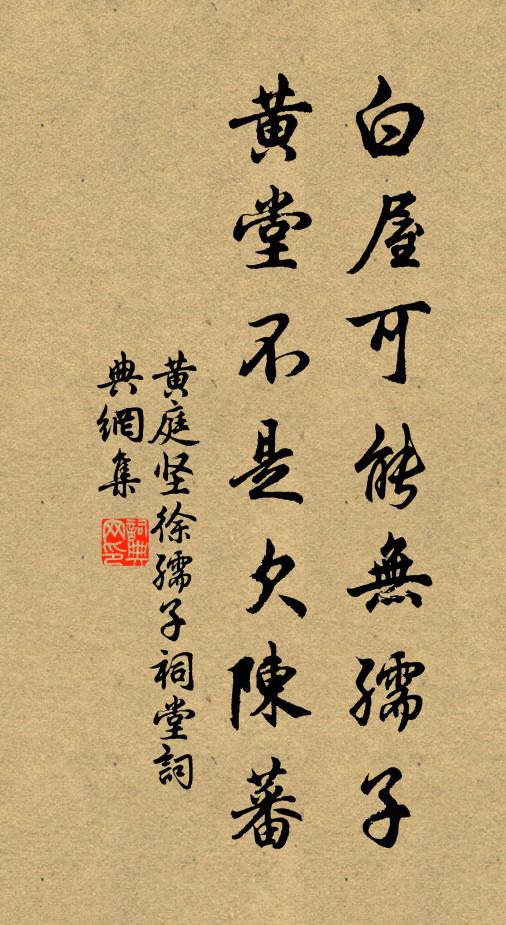 白屋可能無孺子
黃堂不是欠陳蕃
黃庭坚徐孺子祠堂詞
典網集
詞典網印